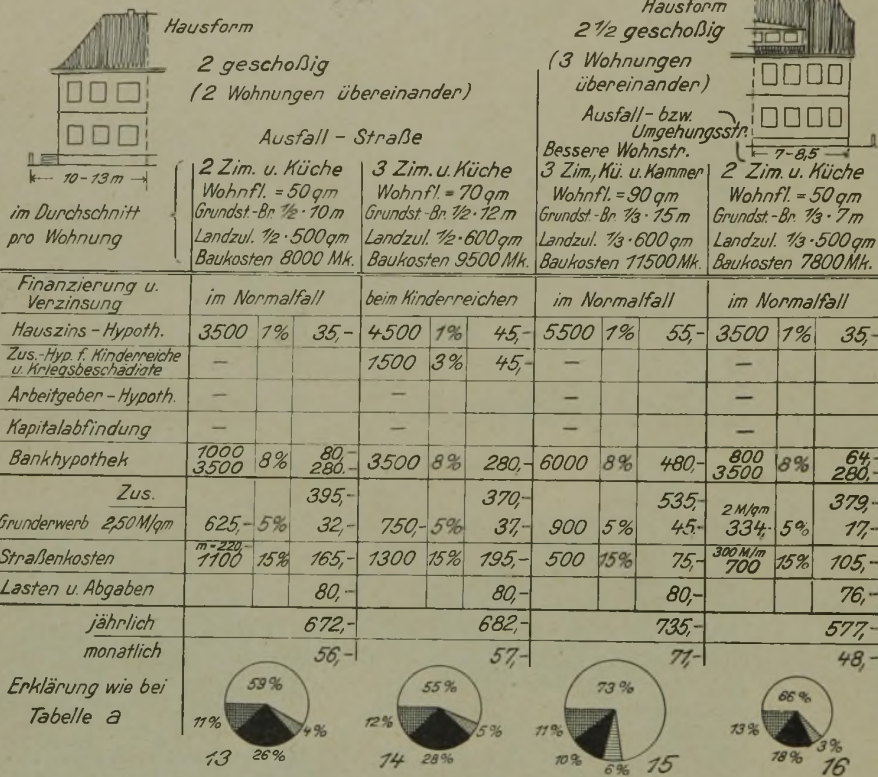 Hausform
2 geschoßig
(2 Wohnungen übereinander)
Ausfall - Straße
Hausform
2 1/2 geschoßig
(3 Wohnungen
übereinander)
Ausfall - bzw.
Umgehungsstr.
Bessere Wohnstr.
10-13m
7-8,5
im Durchschnitt
pro Wohnung
2 Zim. u. Küche
Wohnfl. = 50 qm
Grundst.-Br. 1/2 · 10m
Landzul. 1/2 · 500qm
Baukosten 8000 Mk.
3 Zim. u. Küche
Wohnfl. = 70 qm
Grundst.-Br. 1/2 · 12m
Landzul. 1/2 · 600qm
Baukosten 9500 Mk.
3 Zim., Kü. u. Kammer
Wohnfl. = 90 qm
Grundst.-Br. 1/3 · 15m
Landzul. 1/3 · 600qm
Baukosten 11500 Mk.
2 Zim. u. Küche
Wohnfl. = 50 qm
Grundst.-Br. 1/3 · 7m
Landzul. 1/3 · 500qm
Baukosten 7800 Mk.
Finanzierung u.
Verzinsung
im Normalfall
beim Kinderreichen
im Normalfall
im Normalfall
Hauszins - Hypoth. 3500 1% 35,- 4500 1% 45,- 5500 1% 55,- 3500 1% 35,-
Zus.-Hyp. f. Kinderreiche
u. Kriegsbeschädigte — 1500 3% 45,- — —
Arbeitgeber - Hypoth. — — — —
Kapitalabfindung — — — —
Bankhypothek 1000 3500 8% 80,- 280.- 3500 8% 280,- 6000 8% 480,- 800 3500 8% 64,- 280,-
Zus. 395,- 370,- 535,- 379,-
Grunderwerb 2,50 M/qm 625,- 5% 32,- 750,- 5% 37,- 900 5% 45,- 2 M/qm 334,- 5% 17,-
Straßenkosten m = 220,- 1100 15% 165,- 1300 15% 195,- 500 15% 75,- 300 M/m 700 15% 105,-
Lasten u. Abgaben 80,- 80,- 80,- 76,-
jährlich 672,- 682,- 735,- 577,-
monatlich 56,- 57,- 71,- 48,-
Erklärung wie bei
Tabelle a
59% 11% 4% 26% 13
55% 12% 5% 28% 14
73% 11% 10% 6% 15
66% 13% 3% 18% 16